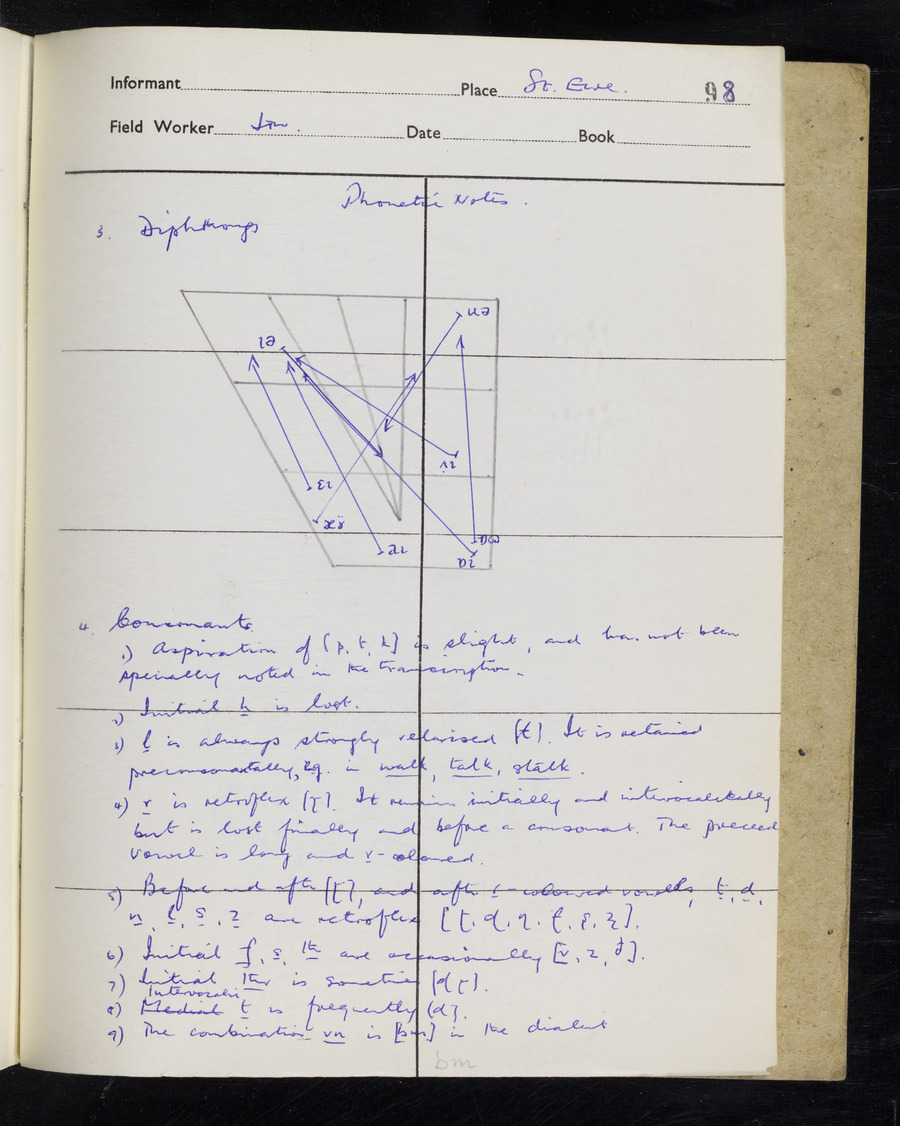 Informant
Place St. Ewe. 98
Field Worker
Date
Book
Phonetic Notes.
3. Diphthongs
4. Consonants
1) Aspiration of [p, t, k] is slight, and has not been
specially noted in the transcription.
2) Initial h is lost.
3) l is always strongly velarised [ɫ]. It is retained
preconsonantally, eg. in walk, talk, stalk.
4) r is retroflex [ɽ]. It remains initially and intervocalically
but is lost finally and before a consonant. The preceed
vowel is long and r-coloured.
5) Before and after [ɽ], and after r-coloured vowels, t, d,
n, l, s, z are retroflex [ʈ, ɖ, ɳ, ɭ, ʂ, ʐ].
6) Initial f, s, th are occasionally [v, z, ð].
7) Initial thr is sometimes [dɽ].
Intervocalic
8) Medial t is frequently [d].
9) The combination vn is [bm] in the dialect
bm